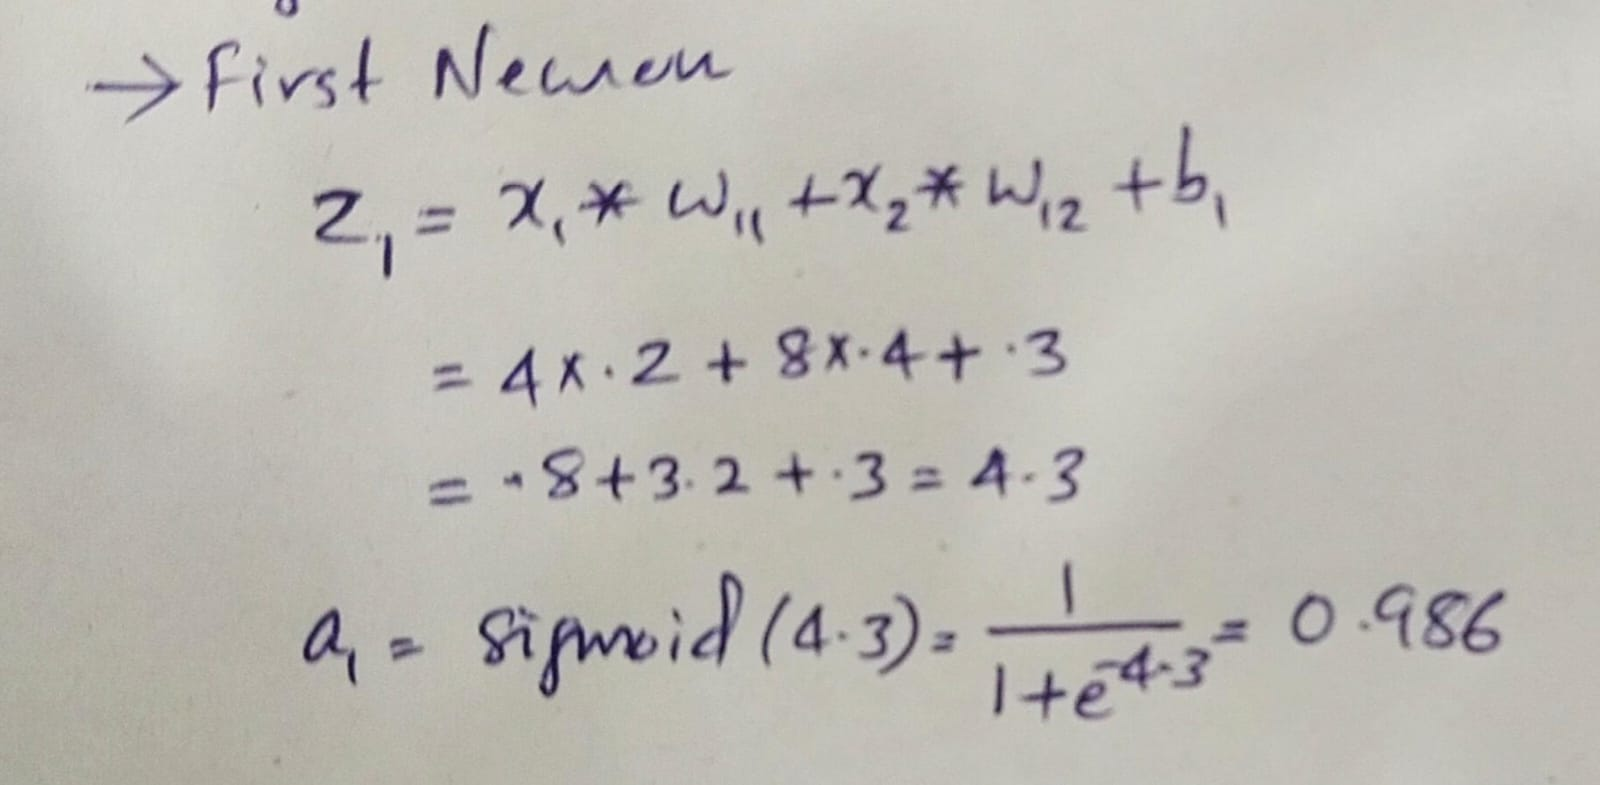 → First Neuron
z₁ = x₁ * w₁₁ + x₂ * w₁₂ + b₁
= 4 x .2 + 8 x .4 + .3
= .8 + 3.2 + .3 = 4.3
a₁ = sigmoid (4.3) = 1/(1+e^-4.3) = 0.986